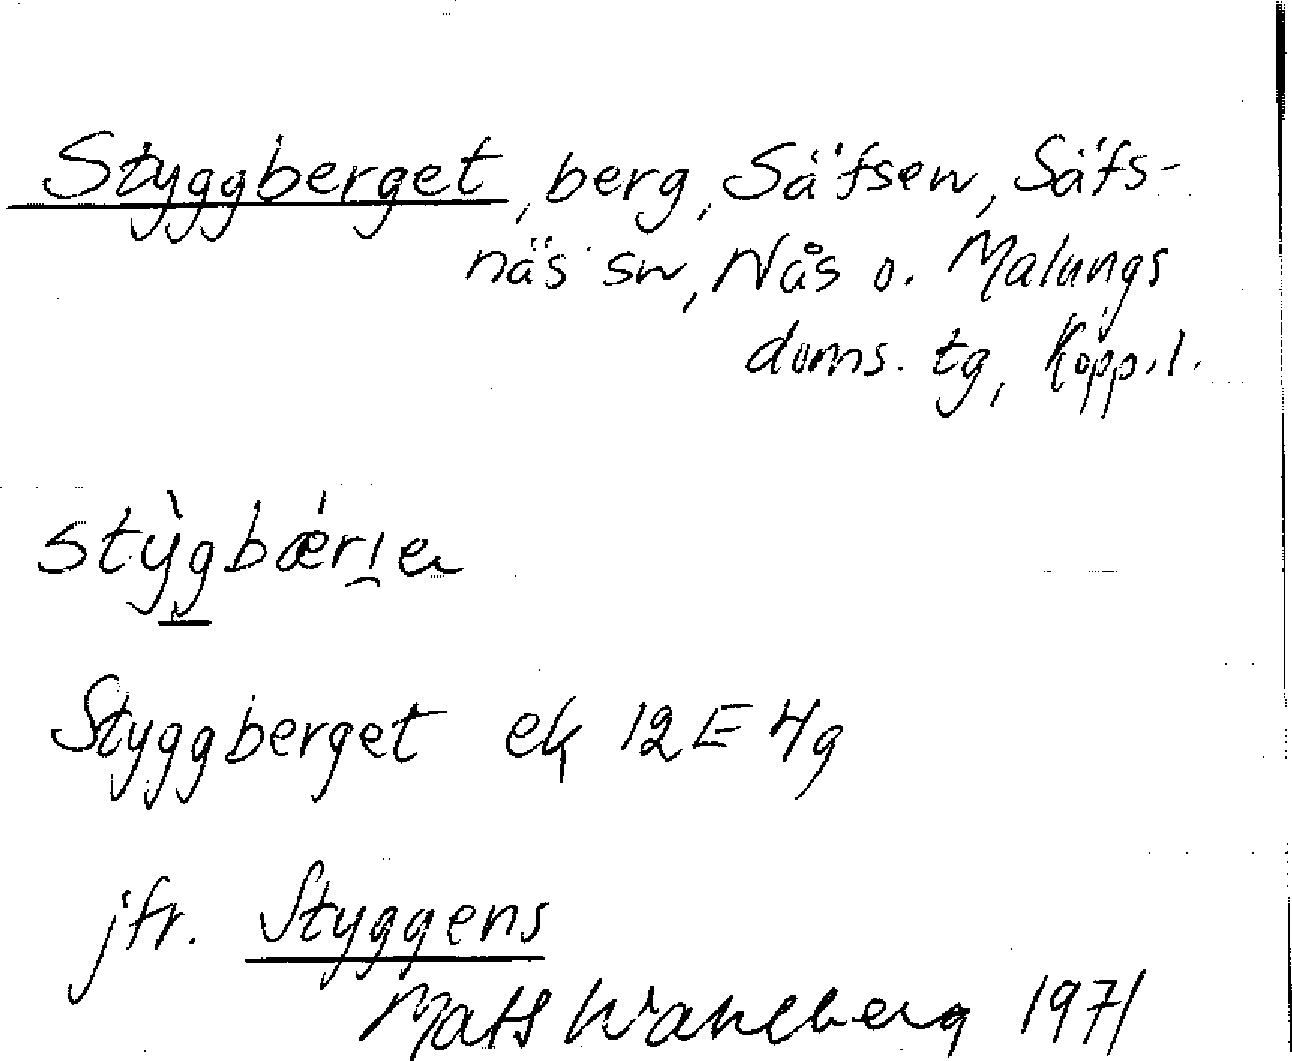 Styggberget, berg, Säfsen, Säfs-
näs sn, Nås o. Malungs
doms. tg, Kopp. l.
stỳgbǽrıe̯
Styggberget ek 12E 4g
jfr. Styggens
Mats Wahlberg 1971